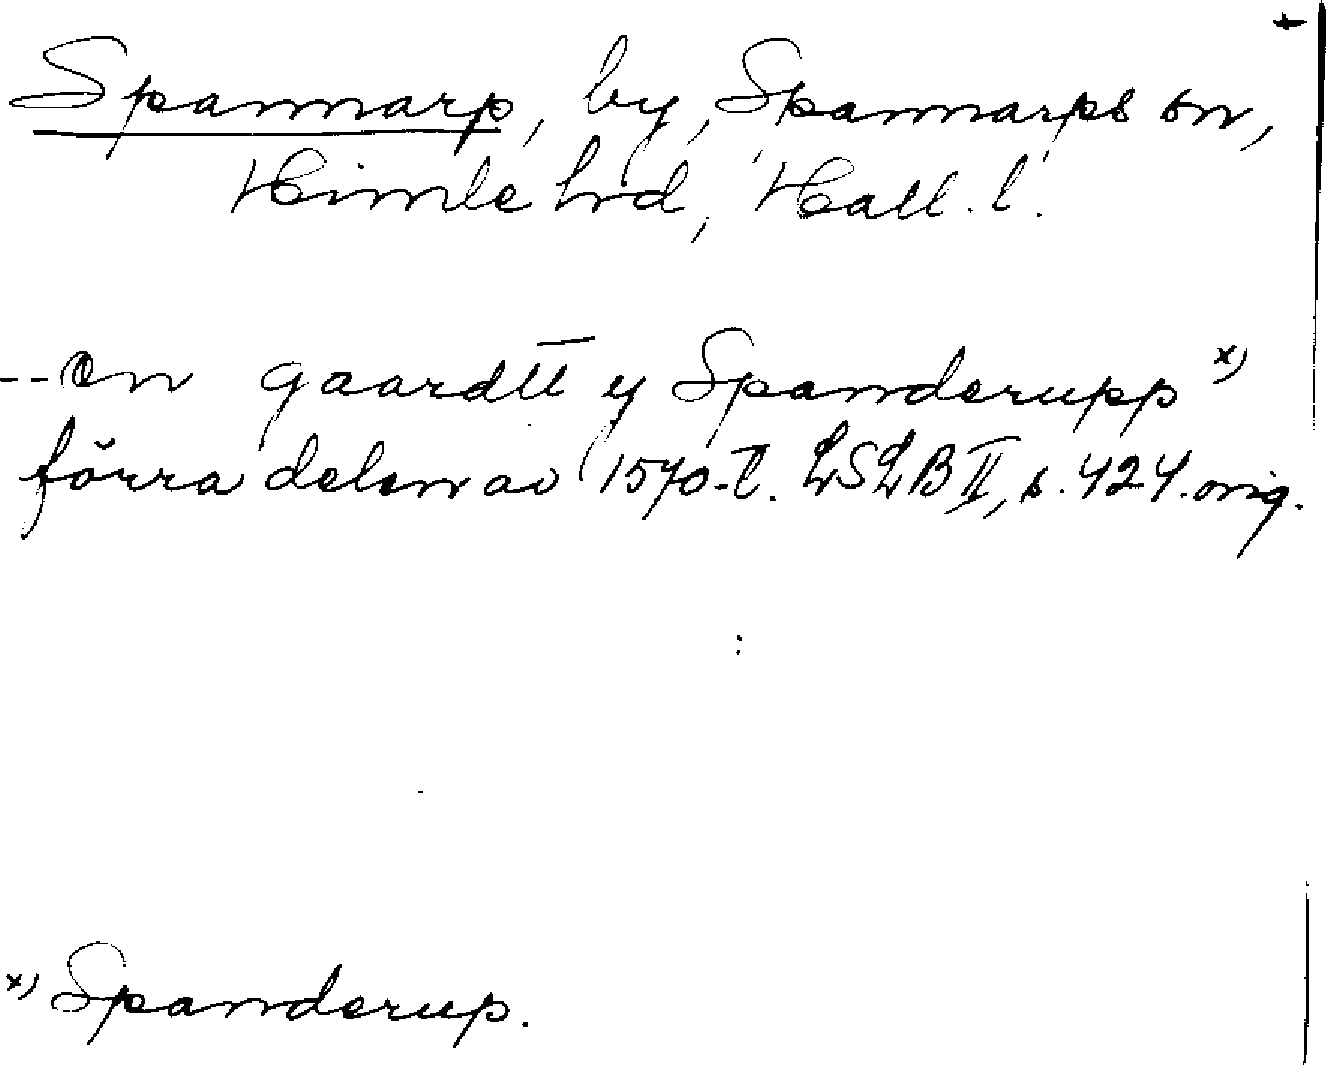 +
Spannarp, by, Spannarps sn,
Himle hd, Hall. l.
-- en gaardtt y Spanderupp x)
förra delen av 1570-t. LSLB II, s. 424. orig.
x) Spanderup.